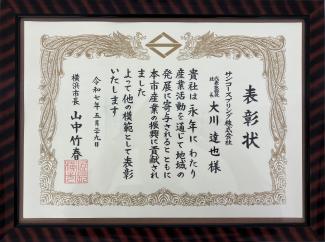 表彰状
サンコースプリング株式会社
代表取締役
社長
大川達也様
貴社は永年にわたり
産業活動を通じて地域の
発展に寄与されるとともに
本市産業の振興に貢献され
ました
よって他の模範として表彰
いたします
令和七年五月二十九日
横浜市長 山中竹春